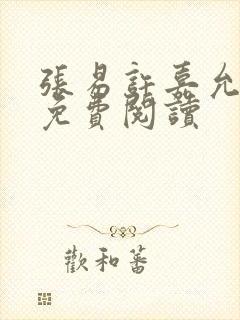 張易許嘉允
免費閱讀
歡和蕃